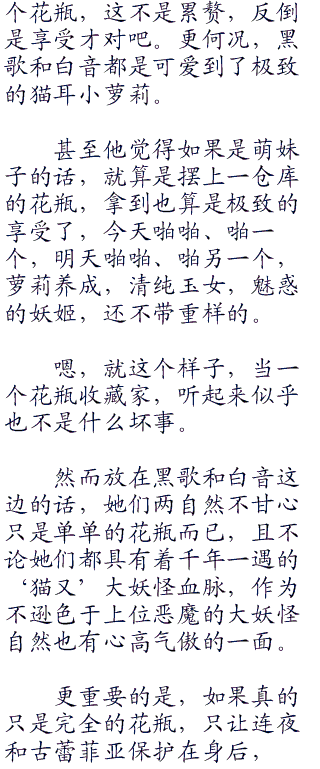 个花瓶，这不是累赘，反倒
是享受才对吧。更何况，黑
歌和白音都是可爱到了极致
的猫耳小萝莉。
甚至他觉得如果是萌妹
子的话，就算是摆上一仓库
的花瓶，拿到也算是极致的
享受了，今天啪啪、啪一
个，明天啪啪、啪另一个，
萝莉养成，清纯玉女，魅惑
的妖姬，还不带重样的。
嗯，就这个样子，当一
个花瓶收藏家，听起来似乎
也不是什么坏事。
然而放在黑歌和白音这
边的话，她们两自然不甘心
只是单单的花瓶而已，且不
论她们都具有着千年一遇的
‘猫又’大妖怪血脉，作为
不逊色于上位恶魔的大妖怪
自然也有心高气傲的一面。
更重要的是，如果真的
只是完全的花瓶，只让连夜
和古蕾菲亚保护在身后，